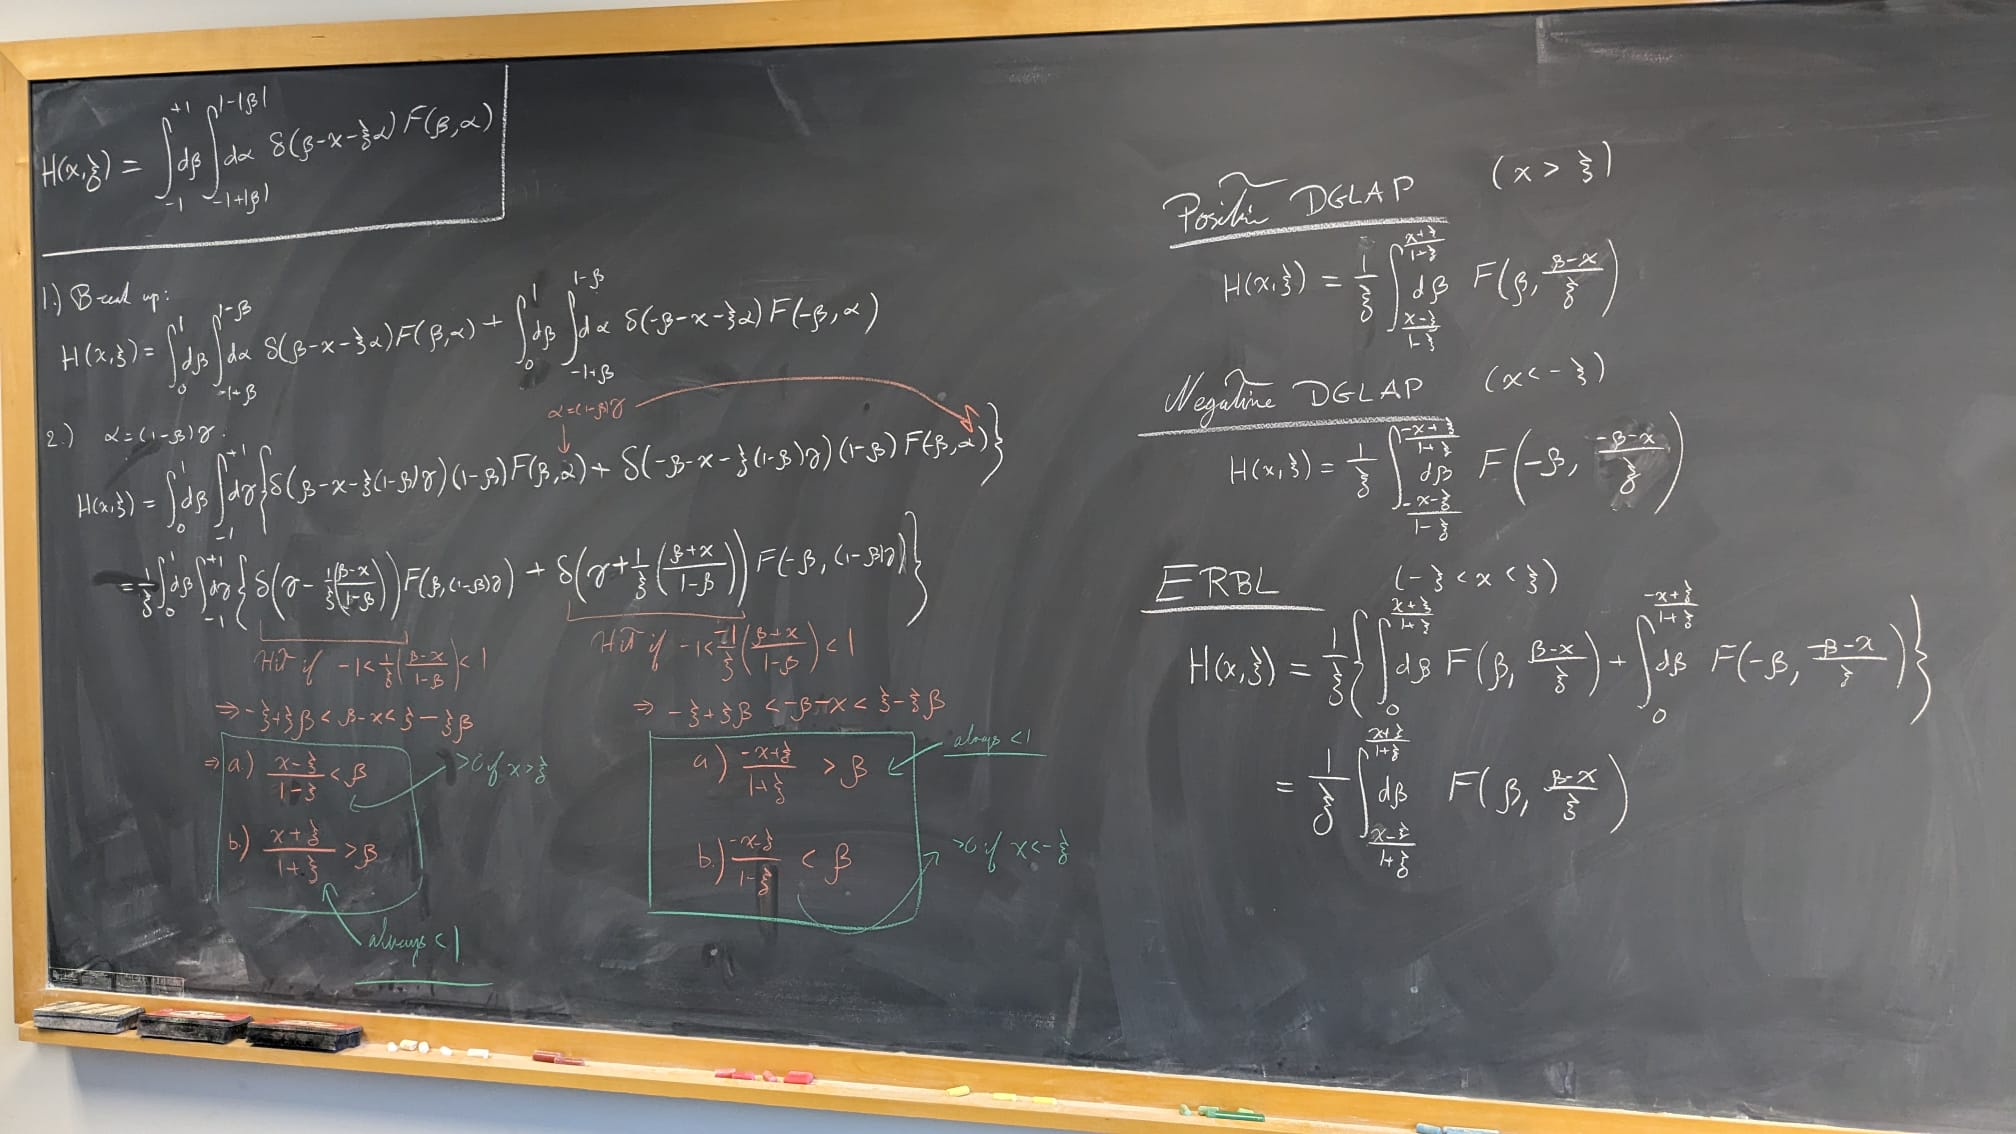 H(x,ξ) = ∫_{-1}^{+1} dβ ∫_{-1+|β|}^{1-|β|} dα δ(β-x-ξα) F(β,α)
1.) Break up:
H(x,ξ) = ∫_0^1 dβ ∫_{-1+β}^{1-β} dα δ(β-x-ξα) F(β,α) + ∫_0^1 dβ ∫_{-1+β}^{1-β} dα δ(-β-x-ξα) F(-β,α)
α=(1-β)γ
2.) α=(1-β)γ.
H(x,ξ) = ∫_0^1 dβ ∫_{-1}^{+1} dγ {δ(β-x-ξ(1-β)γ) (1-β) F(β,α) + δ(-β-x-ξ(1-β)γ) (1-β) F(-β,α)}
= \frac{1}{ξ} ∫_0^1 dβ ∫_{-1}^{+1} dγ {δ(γ - \frac{1}{ξ}(\frac{β-x}{1-β})) F(β,(1-β)γ) + δ(γ + \frac{1}{ξ}(\frac{β+x}{1-β})) F(-β,(1-β)γ)}
Hit if -1 < \frac{1}{ξ}(\frac{β-x}{1-β}) < 1
⇒ -ξ+ξβ < β-x < ξ-ξβ
⇒ a.) \frac{x-ξ}{1-ξ} < β
>0 if x>ξ
b.) \frac{x+ξ}{1+ξ} > β
always <1
Hit if -1 < \frac{-1}{ξ}(\frac{β+x}{1-β}) < 1
⇒ -ξ+ξβ < -β-x < ξ-ξβ
a.) \frac{-x+ξ}{1+ξ} > β
always <1
b.) \frac{-x-ξ}{1-ξ} < β
>0 if x<-ξ
Positive DGLAP (x > ξ)
H(x,ξ) = \frac{1}{ξ} ∫_{\frac{x-ξ}{1-ξ}}^{\frac{x+ξ}{1+ξ}} dβ F(β, \frac{β-x}{ξ})
Negative DGLAP (x < -ξ)
H(x,ξ) = \frac{1}{ξ} ∫_{\frac{-x-ξ}{1-ξ}}^{\frac{-x+ξ}{1+ξ}} dβ F(-β, \frac{-β-x}{ξ})
ERBL (-ξ < x < ξ)
H(x,ξ) = \frac{1}{ξ} {∫_0^{\frac{x+ξ}{1+ξ}} dβ F(β, \frac{β-x}{ξ}) + ∫_0^{\frac{-x+ξ}{1+ξ}} dβ F(-β, \frac{-β-x}{ξ})}
= \frac{1}{ξ} ∫_{\frac{x-ξ}{1+ξ}}^{\frac{x+ξ}{1+ξ}} dβ F(β, \frac{β-x}{ξ})